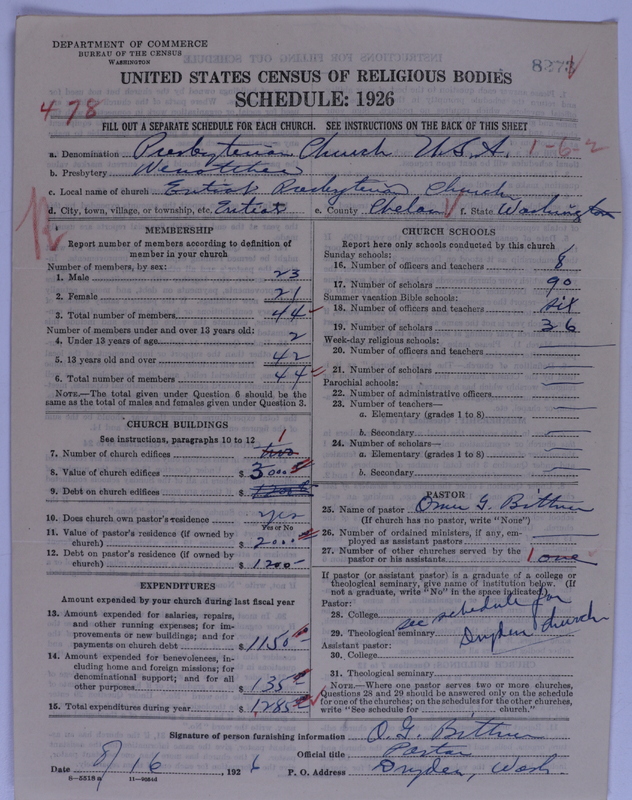 DEPARTMENT OF COMMERCE
BUREAU OF THE CENSUS
WASHINGTON
8273
UNITED STATES CENSUS OF RELIGIOUS BODIES
SCHEDULE: 1926
478
FILL OUT A SEPARATE SCHEDULE FOR EACH CHURCH. SEE INSTRUCTIONS ON THE BACK OF THIS SHEET
a. Denomination Presbyterian Church U.S.A. 1-6-2
b. Presbytery Wenatchee
c. Local name of church Entiat Presbyterian Church
d. City, town, village, or township, etc. Entiat e. County Chelan f. State Washington
MEMBERSHIP
Report number of members according to definition of
member in your church
Number of members, by sex:
1. Male 23
2. Female 21
3. Total number of members 44
Number of members under and over 13 years old:
4. Under 13 years of age 2
5. 13 years old and over 42
6. Total number of members 44
NOTE.—The total given under Question 6 should be
same as the total of males and females given under Question 3.
CHURCH BUILDINGS
See instructions, paragraphs 10 to 12
7. Number of church edifices two 1
8. Value of church edifices $ 3000
9. Debt on church edifices $ 1200
10. Does church own pastor's residence yes
Yes or No
11. Value of pastor's residence (if owned by
church) $ 2000
12. Debt on pastor's residence (if owned by
church) $ 1200
EXPENDITURES
Amount expended by your church during last fiscal year
13. Amount expended for salaries, repairs,
and other running expenses; for im-
provements or new buildings; and for
payments on church debt $ 1150
14. Amount expended for benevolences, in-
cluding home and foreign missions; for
denominational support; and for all
other purposes $ 135
15. Total expenditures during year $ 1285
CHURCH SCHOOLS
Report here only schools conducted by this church
Sunday schools:
16. Number of officers and teachers 8
17. Number of scholars 90
Summer vacation Bible schools:
18. Number of officers and teachers six
19. Number of scholars 36
Week-day religious schools:
20. Number of officers and teachers
21. Number of scholars
Parochial schools:
22. Number of administrative officers
23. Number of teachers—
a. Elementary (grades 1 to 8)
b. Secondary
24. Number of scholars—
a. Elementary (grades 1 to 8)
b. Secondary
PASTOR
25. Name of pastor G. Bittner
(If church has no pastor, write "None")
26. Number of ordained ministers, if any, em-
ployed as assistant pastors
27. Number of other churches served by the
pastor or his assistants 1 one
If pastor (or assistant pastor) is a graduate of a college or
theological seminary, give name of institution below. (If
not a graduate, write "No" in the space indicated)
Pastor:
28. College see schedule for
29. Theological seminary Dryden church
Assistant pastor:
30. College
31. Theological seminary
NOTE.—Where one pastor serves two or more churches,
Questions 28 and 29 should be answered only on the schedule
for one of the churches; on the schedules for the other churches,
write "See schedule for church."
Signature of person furnishing information O. G. Bittner
Official title Pastor
Date 8/16, 1926 P. O. Address Dryden, Wash